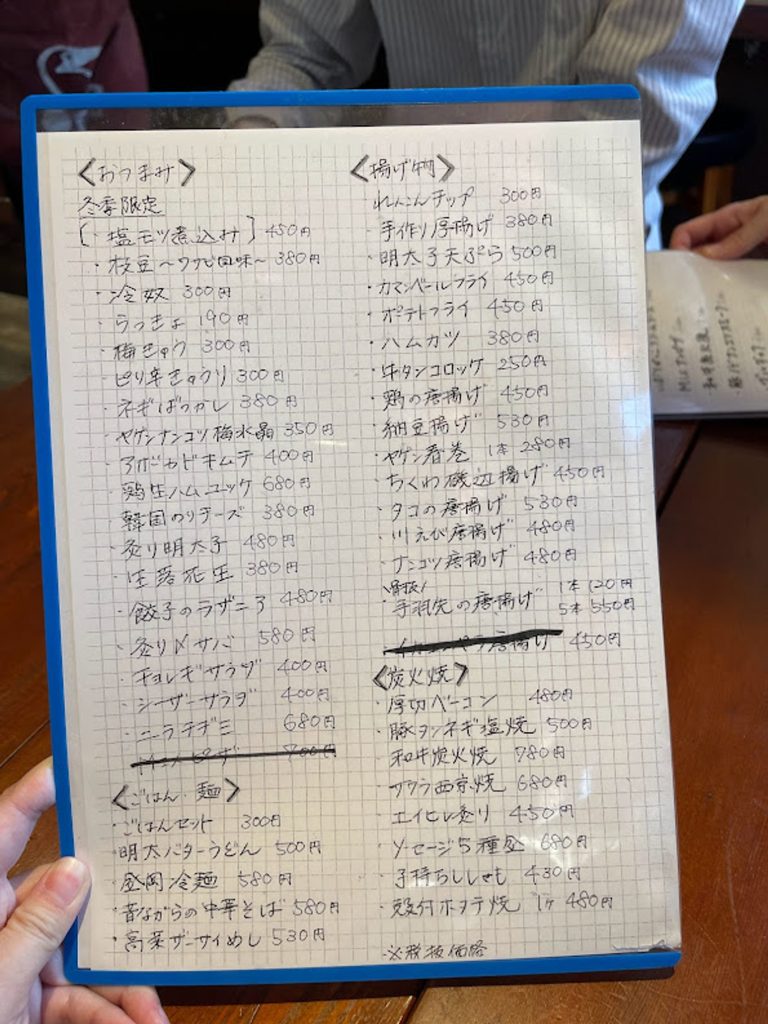 <おつまみ>
冬季限定
[・塩モツ煮込み] 450円
・枝豆〜ワサビ風味〜 380円
・冷奴 300円
・らっきょ 190円
・梅きゅう 300円
・ピリ辛きゅうり 300円
・ネギばっかし 380円
・ヤゲンナンコツ梅水晶 350円
・アボカドキムチ 400円
・鶏生ハムユッケ 680円
・韓国のりチーズ 380円
・炙り明太子 480円
・生落花生 380円
・餃子のラザニア 480円
・炙り〆サバ 580円
・チョレギサラダ 400円
・シーザーサラダ 400円
・ニラチヂミ 680円
700円
<ごはん・麺>
・ごはんセット 300円
・明太バターうどん 500円
・盛岡冷麺 580円
・昔ながらの中華そば 580円
・高菜ザーサイめし 530円
<揚げ物>
・れんこんチップ 300円
・手作り厚揚げ 380円
・明太子天ぷら 500円
・カマンベールフライ 450円
・ポテトフライ 450円
・ハムカツ 380円
・牛タンコロッケ 250円
・鶏の唐揚げ 450円
・納豆揚げ 530円
・ヤゲン春巻 1本 280円
・ちくわ磯辺揚げ 450円
・タコの唐揚げ 530円
・川えび唐揚げ 480円
・ナンコツ唐揚げ 480円
・\骨抜/手羽先の唐揚げ 1本 120円
5本 550円
唐揚げ 450円
<炭火焼>
・厚切ベーコン 480円
・豚タンネギ塩焼 500円
・和牛炭火焼 780円
・サワラ西京焼 680円
・エイヒレ炙り 450円
・ソーセージ5種盛 680円
・子持ちししゃも 430円
・殻付ホタテ焼 1ヶ 480円
※税抜価格